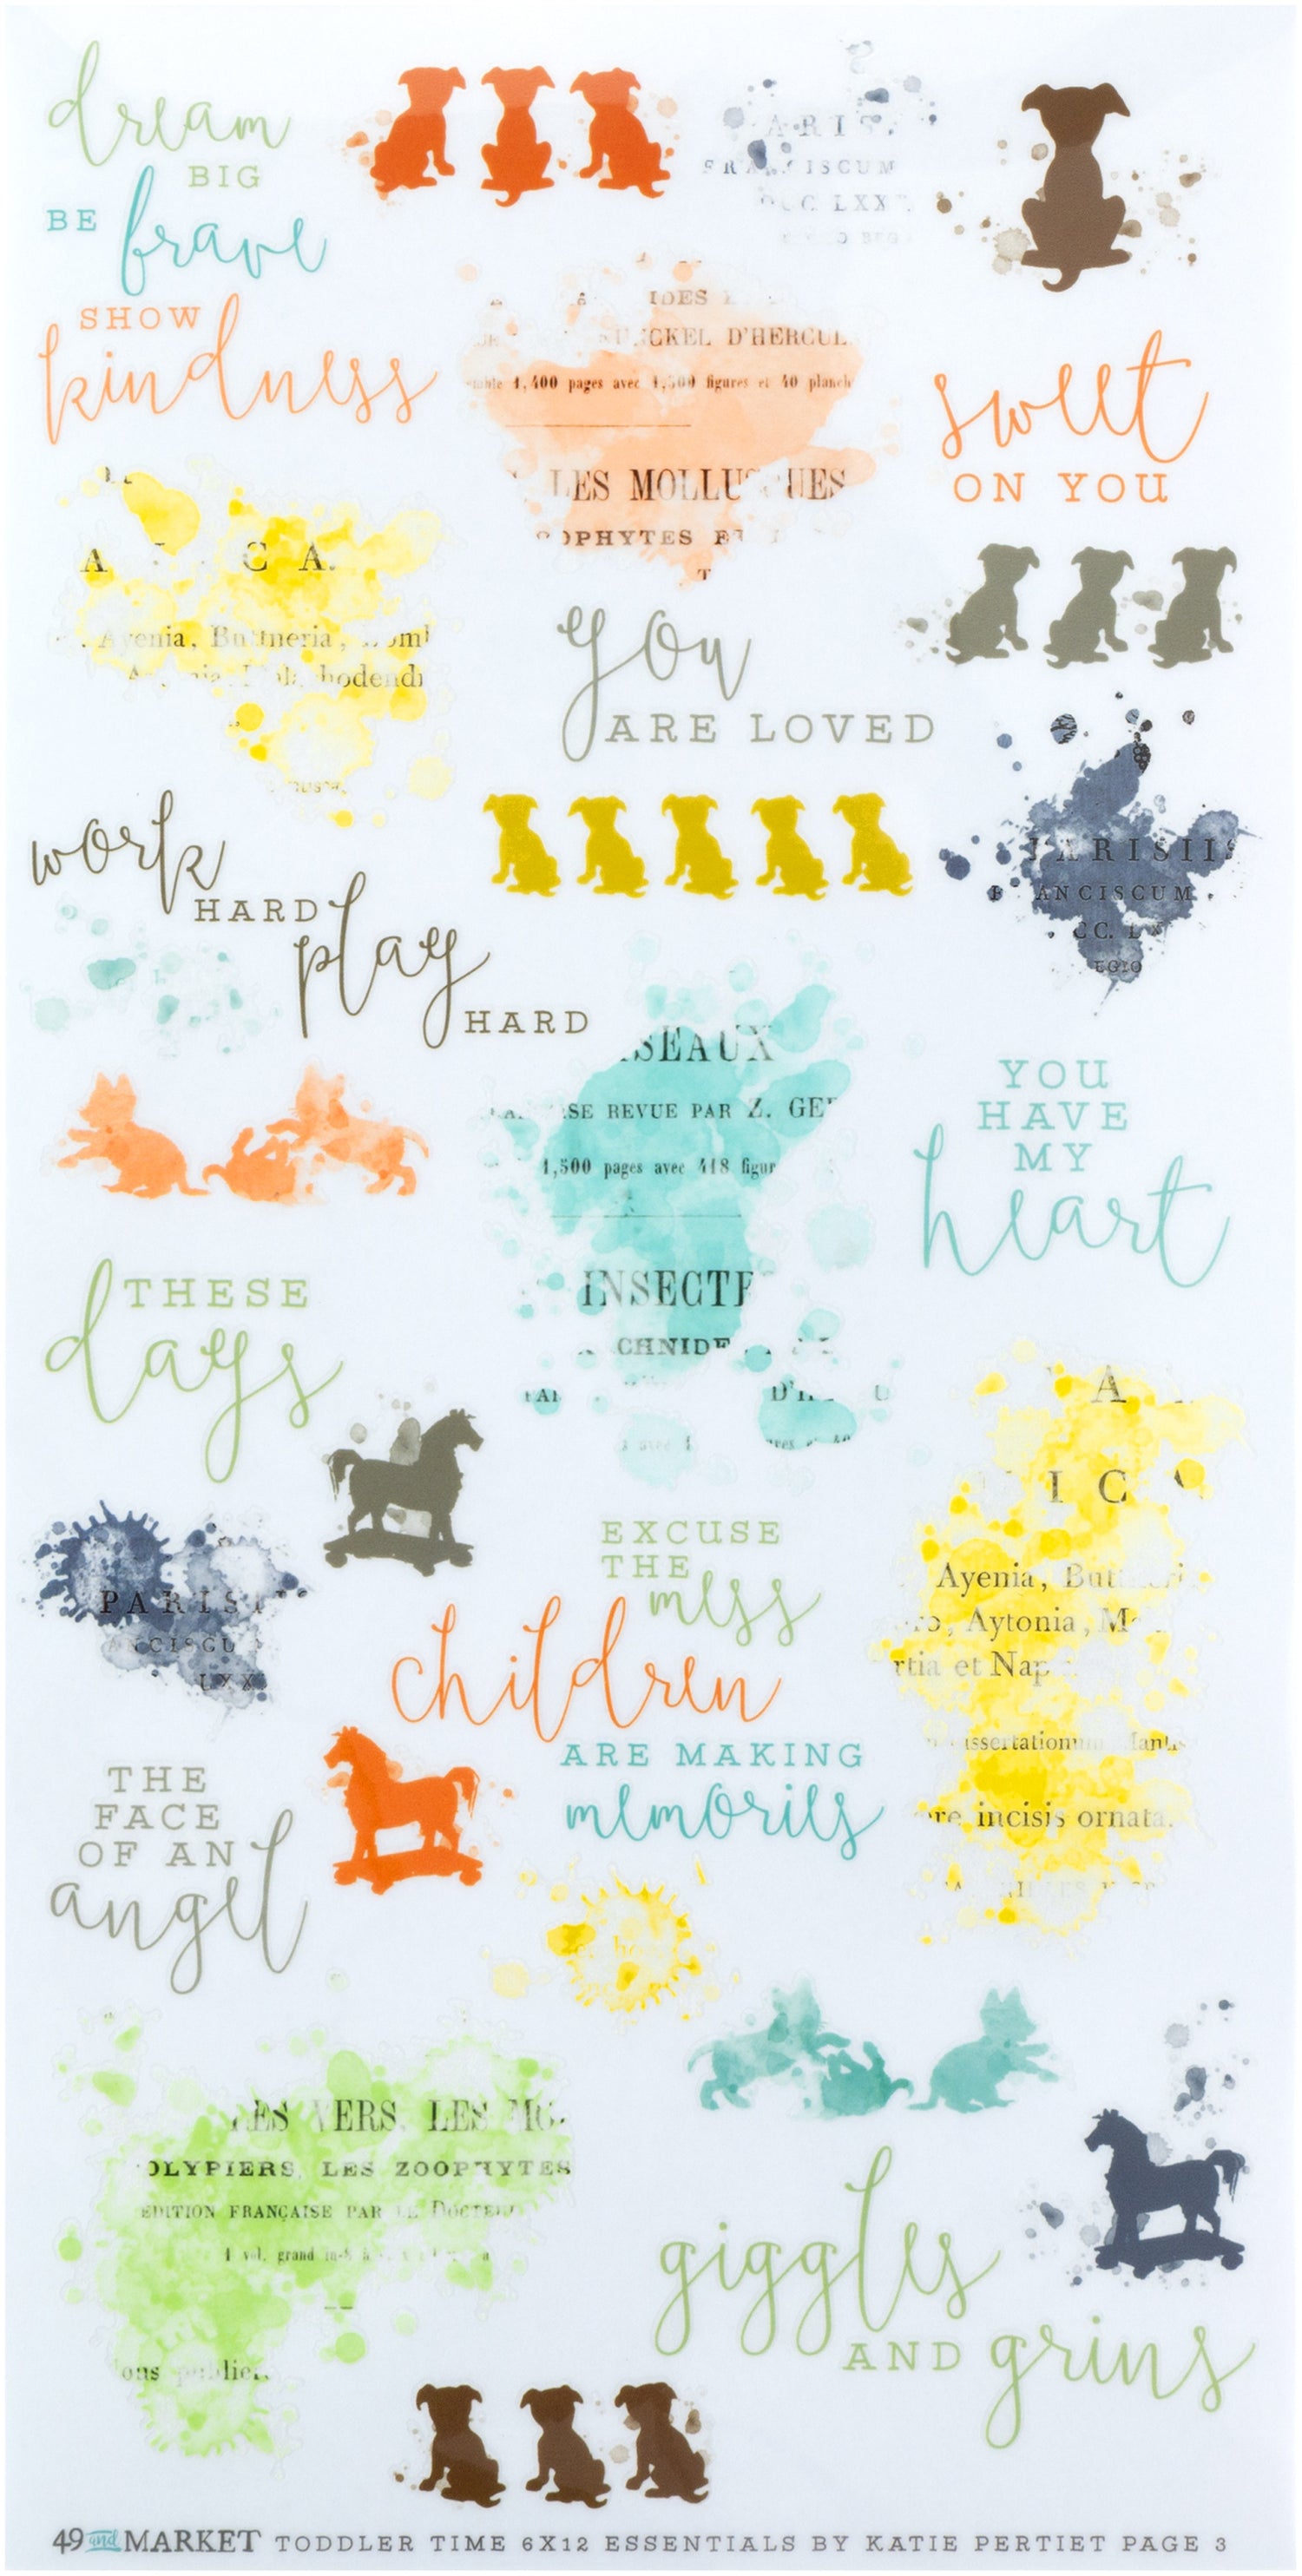 dream
BIG
BE brave
SHOW
kindness
FRANCISCUM
IDES
D'HERCUL
1,400 pages avec 1,500 figures et 40 planch
LES MOLLUSQUES
OPHYTES ET
T
sweet
ON YOU
A C A.
Ayenia, Buttneria,
hodendr
you
ARE LOVED
work
HARD play
HARD
PARISIIS
FRANCISCUM
CC. LX
EGIO
SEAUX
SE REVUE PAR Z. GE
1,500 pages avec 418 figur
INSECTE
CHNIDE
YOU
HAVE
MY
heart
THESE
days
PARISI
CISCU
LXX
EXCUSE
THE
mess
children
ARE MAKING
memories
A
I C A
Ayenia, Butt
ro, Aytonia, M
rtia et Nap
issertationum Mantis
re incisis ornata.
THE
FACE
OF AN
angel
LES VERS, LES MO
OLYPIERS, LES ZOOPHYTES
EDITION FRANÇAISE PAR LE DOCTEUR
1 vol. grand in-8 à
ous public
giggles
AND grins
49 and MARKET TODDLER TIME 6X12 ESSENTIALS BY KATIE PERTIET PAGE 3